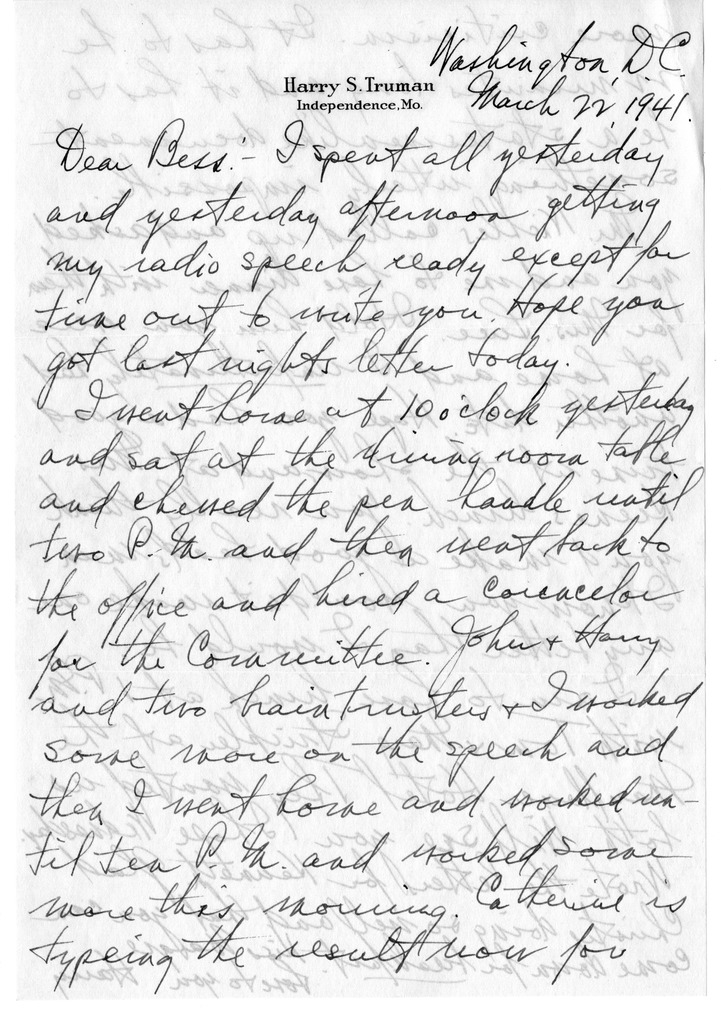 Washington, D.C.
Harry S. Truman
Independence, Mo.
March 22, 1941.
Dear Bess:- I spent all yesterday
and yesterday afternoon getting
my radio speech ready except for
time out to write you. Hope you
got last nights letter today.
I went home at 10 o'clock yesterday
and sat at the dining room table
and chewed the pen handle until
two P.M. and then went back to
the office and hired a councelor
for the Committee. John & Harry
and two braintrusters & I worked
some more on the speech and
then I went home and worked un-
til ten P.M. and worked some
more this morning. Catherine is
typeing the result now for